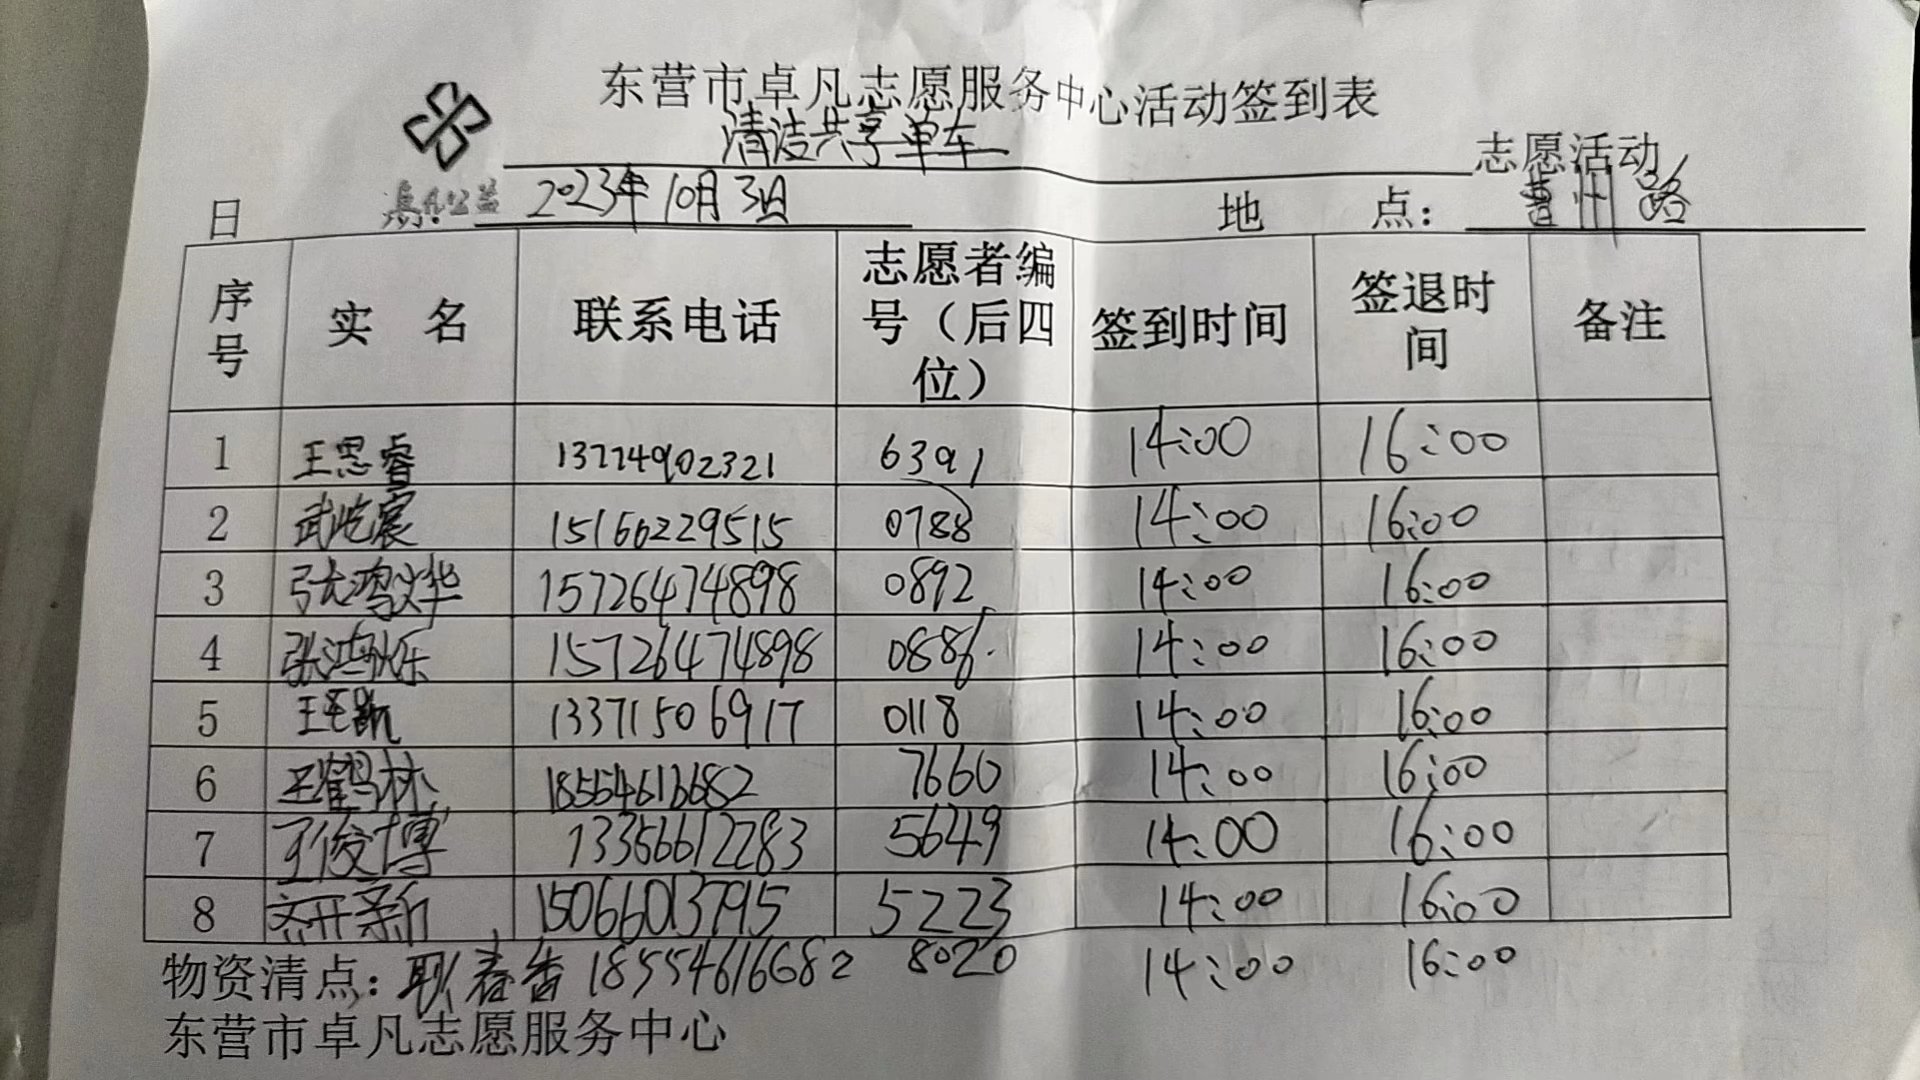 东营市卓凡志愿服务中心活动签到表
清洁共享单车 志愿活动
日 期: 2023年10月3日 地 点: 曹州路
序号 实 名 联系电话 志愿者编号（后四位） 签到时间 签退时间 备注
1 王思睿 13774902321 6391 14:00 16:00
2 武屹宸 15166229515 0788 14:00 16:00
3 张鸿烨 15726474898 0892 14:00 16:00
4 张鸿乐 15726474898 0886 14:00 16:00
5 王 凯 13371506917 0118 14:00 16:00
6 王鹤林 18554616682 7660 14:00 16:00
7 王俊博 13366612283 5649 14:00 16:00
8 齐开新 15066013795 5223 14:00 16:00
物资清点: 耿春香 18554616682 8020 14:00 16:00
东营市卓凡志愿服务中心